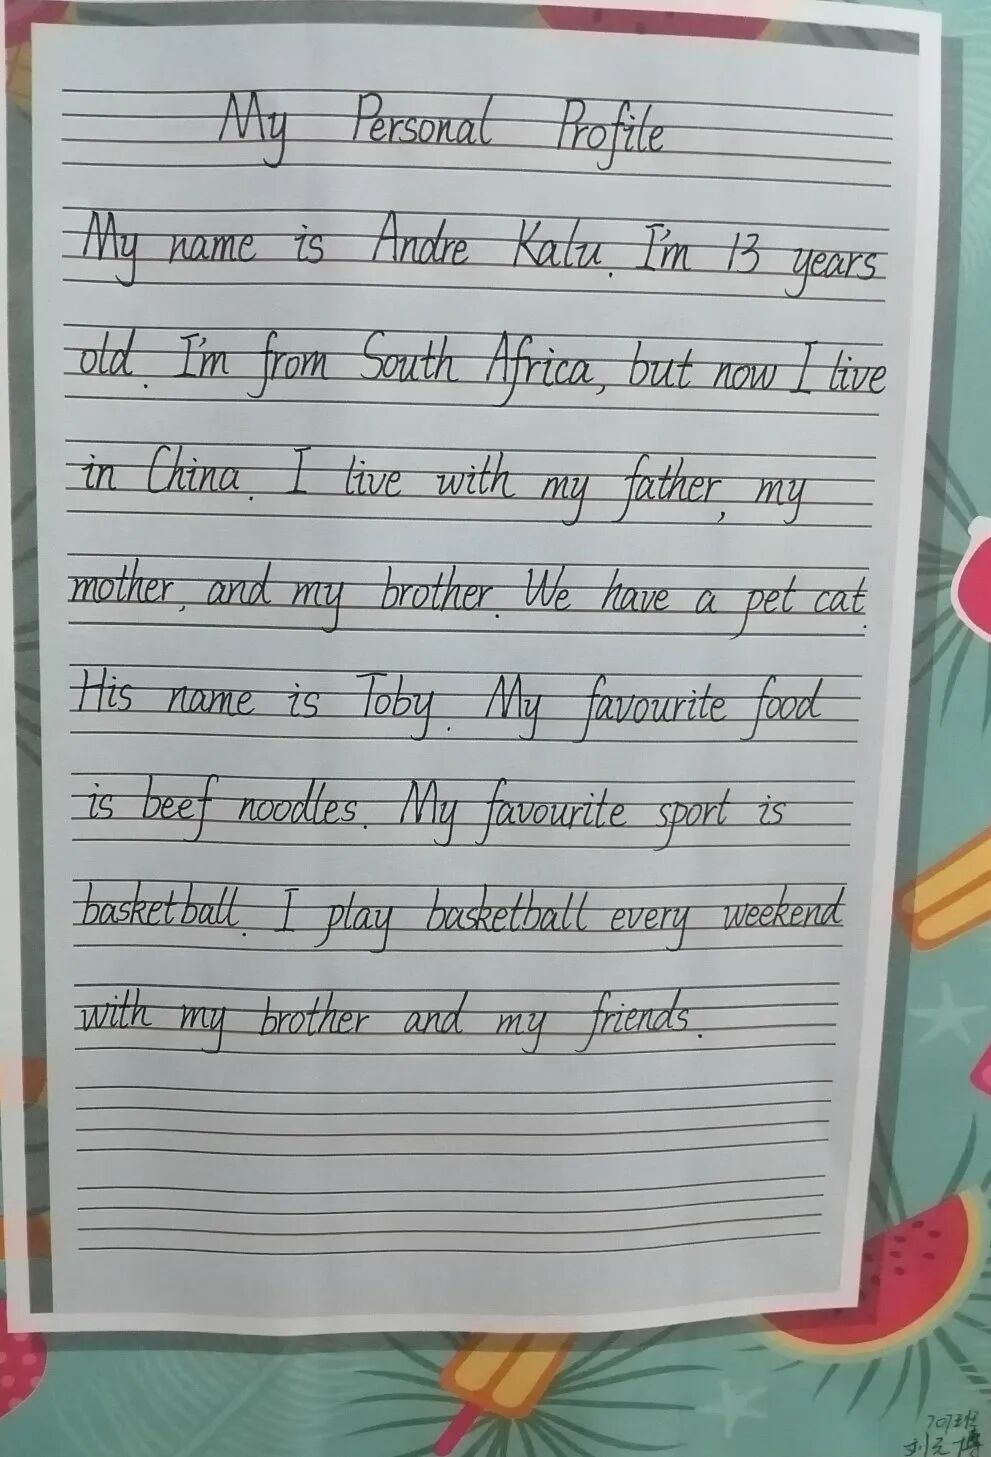 My Personal Profile
My name is Andre Kalu. I'm 13 years
old. I'm from South Africa, but now I live
in China. I live with my father, my
mother, and my brother. We have a pet cat.
His name is Toby. My favourite food
is beef noodles. My favourite sport is
basketball. I play basketball every weekend
with my brother and my friends.
707班
刘元博